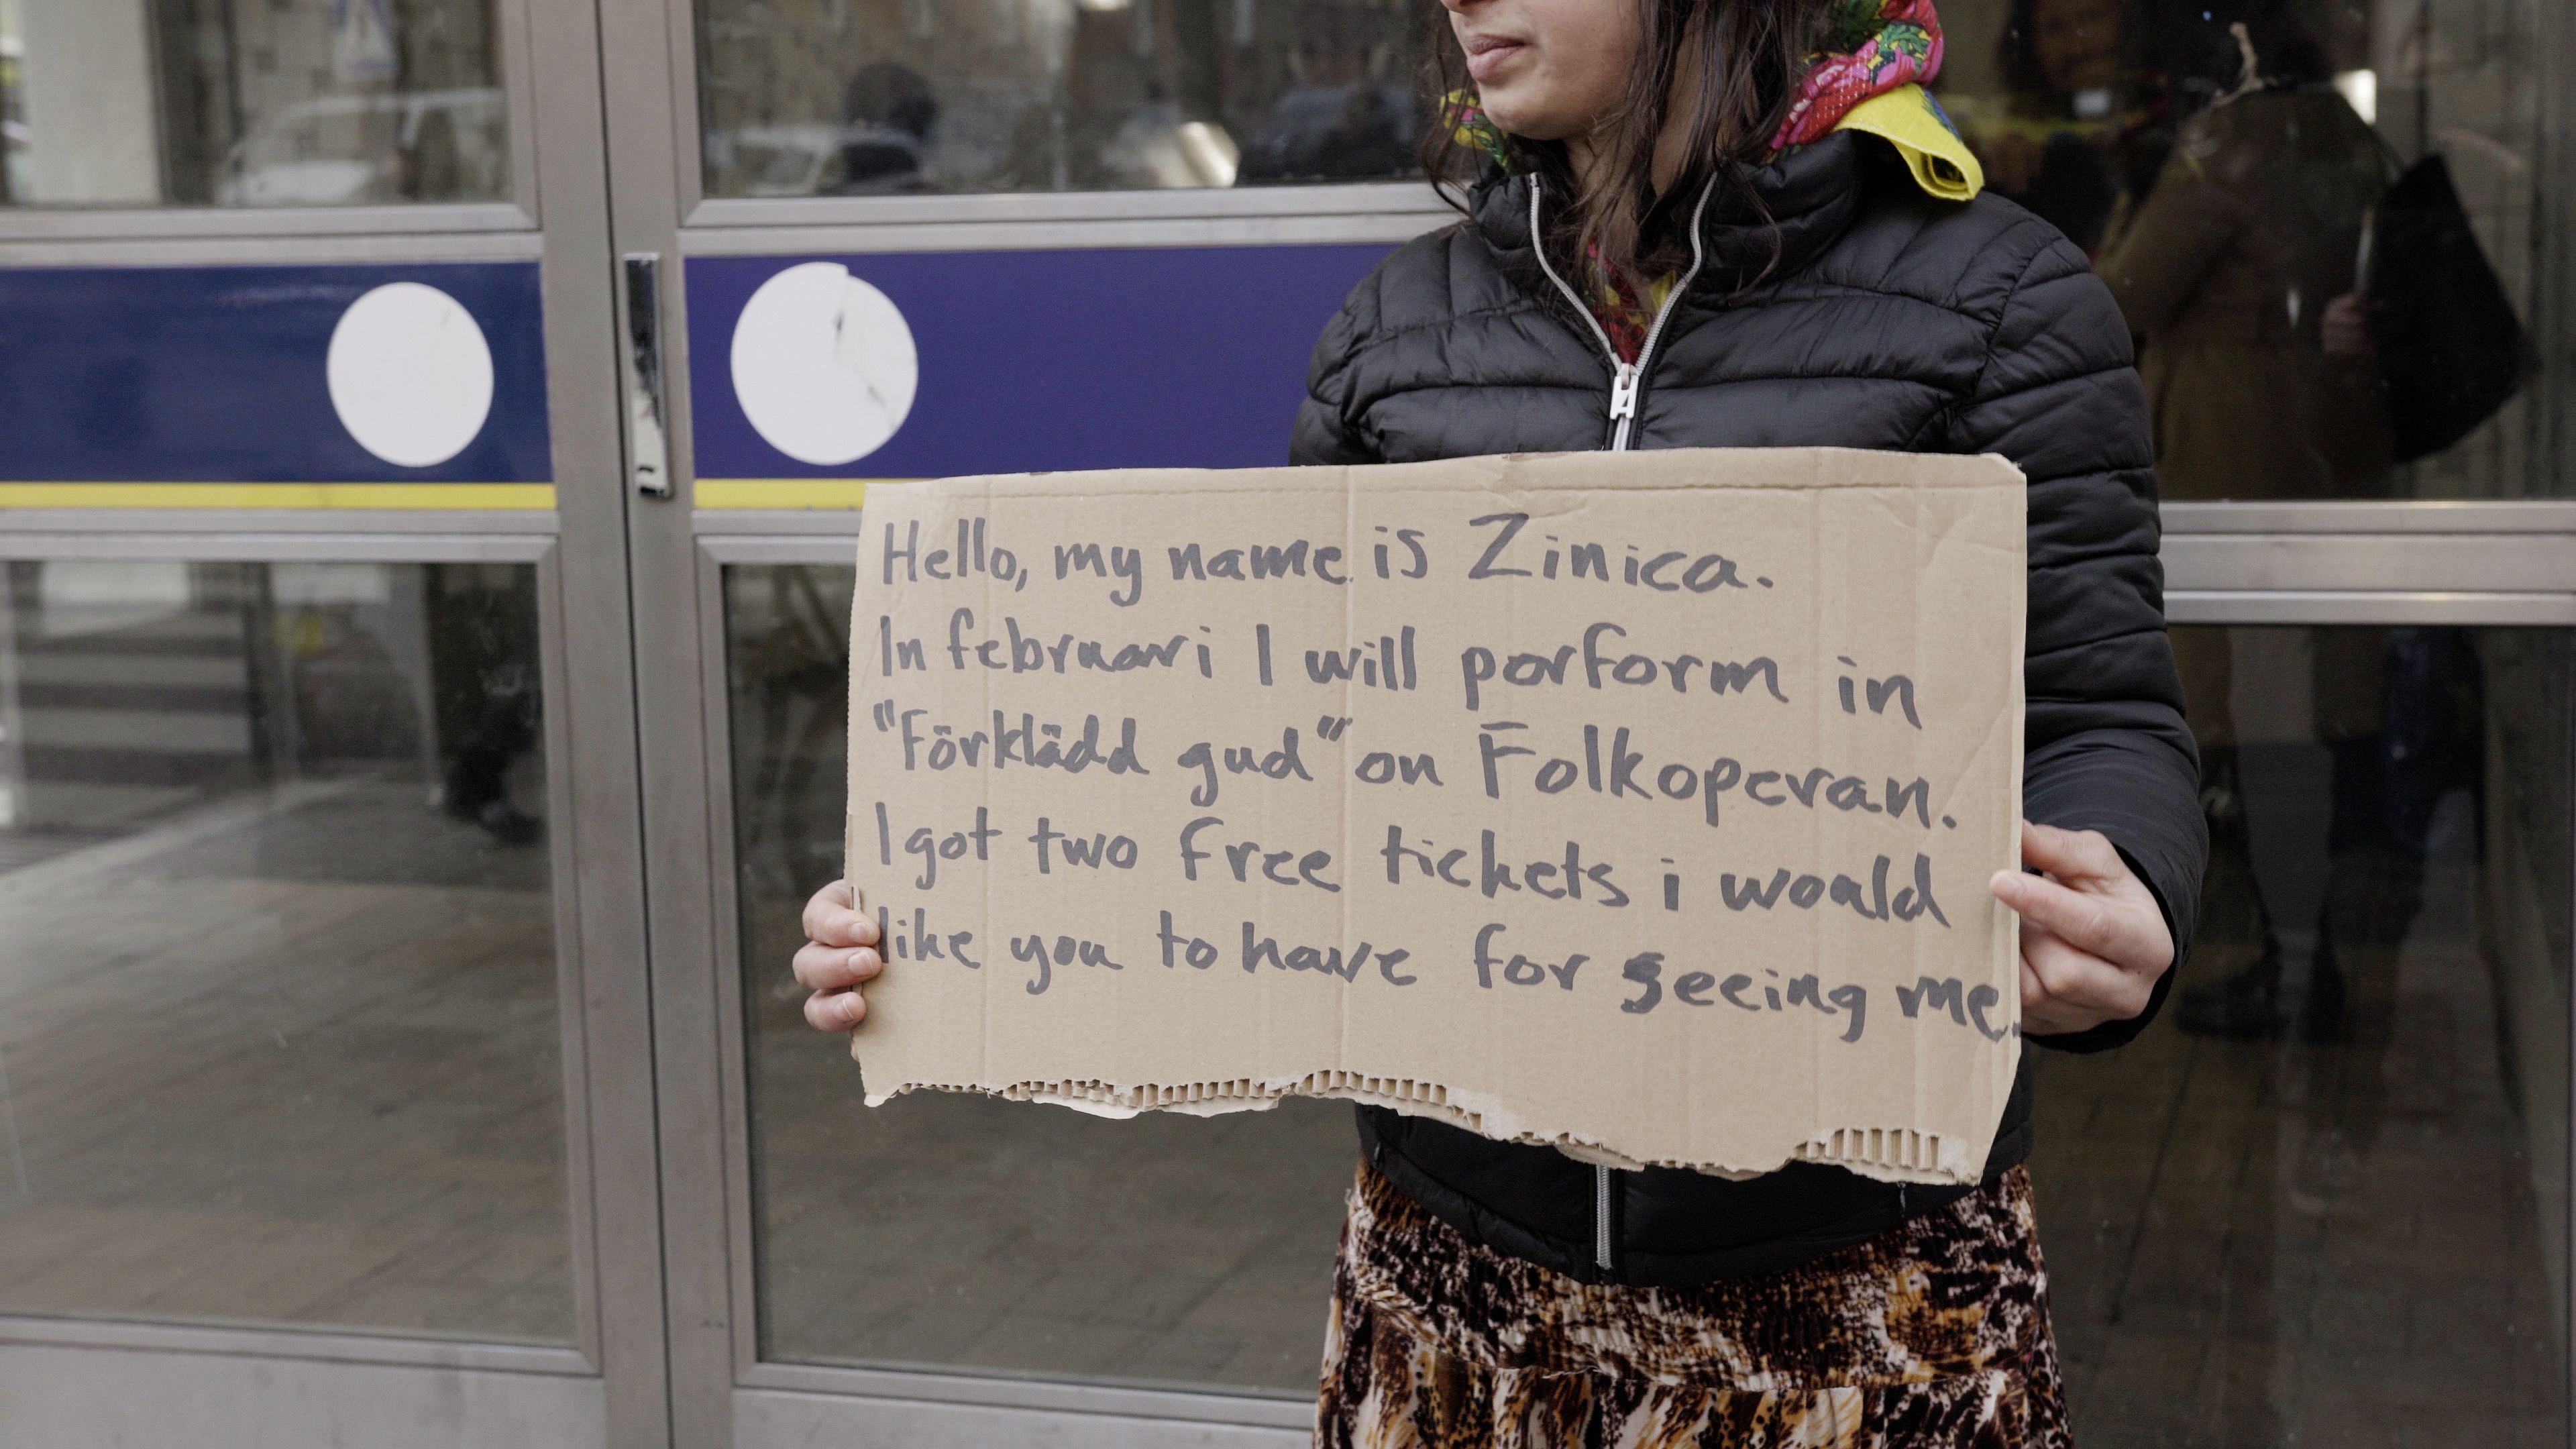 Hello, my name is Zinica.
In februari I will porform in
"Förklädd gud" on Folkoperan.
I got two free tickets i woald
like you to have for seeing me.